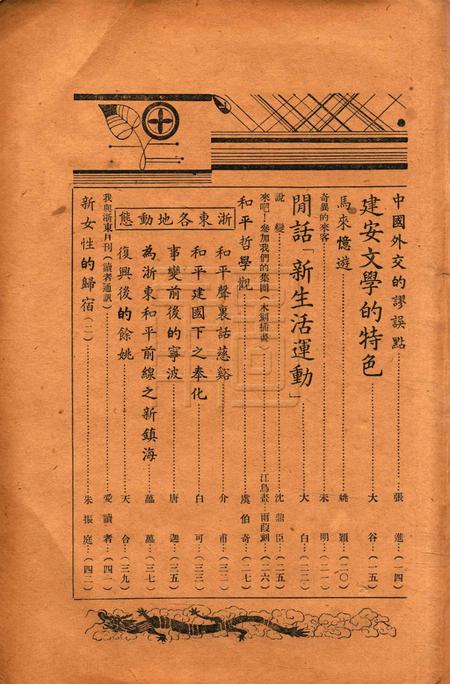 中國外交的謬誤點…張 進…(一四)
建安文學的特色…大 谷…(一五)
馬來憶遊…姚 穎…(二〇)
奇異的來客…未 明…(二一)
閒話「新生活運動」…大 白…(二二)
說 變…沈鼎臣…(二五)
來吧!參加我們的集團(木刻插畫)…江鳥畫…雨葭刻…(二六)
和平哲學觀…虞伯奇…(二七)
浙東各地動態
和平聲裏話慈谿…介 甫…(三二)
和平建國下之奉化…白 可…(三三)
事變前後的寧波…唐 迦…(三五)
為浙東和平前線之新鎮海…蕴 萬…(三七)
復興後的餘姚…天 合…(三九)
我與浙東月刊(讀者通訊)…愛讀者…(四一)
新女性的歸宿(二)…朱振庭…(四二)